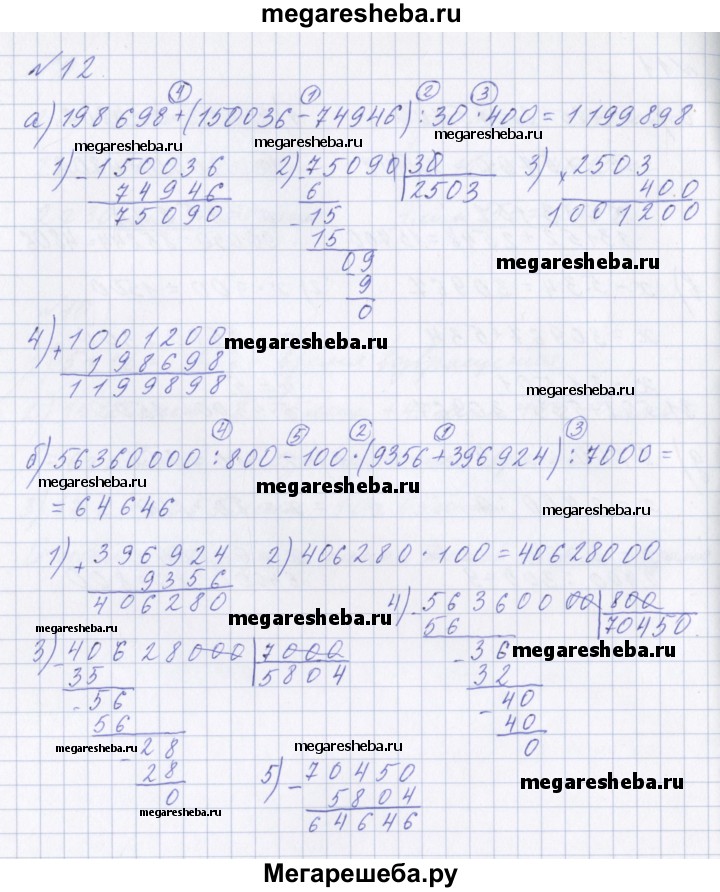 megaresheba.ru
№12
а) 198698+(150036-74946):30·400=1199898
④ ① ② ③
megaresheba.ru megaresheba.ru megaresheba.ru
1) -150036 2) 75090 30 3) ×2503
74946 6 2503 400
75090 -15 1001200
15
09 megaresheba.ru
-9
0
4) +1001200 megaresheba.ru
198698
1199898
megaresheba.ru
④ ⑤ ② ① ③
б) 56360000:800-100·(9356+396924):7000=
megaresheba.ru megaresheba.ru
=64646 megaresheba.ru
1) +396924 2) 406280·100=40628000
9356
406280 4) -56360000 800
megaresheba.ru megaresheba.ru 56 70450
3) -40628000 7000 -36 megaresheba.ru
35 5804 32
-56 -40
56 40
megaresheba.ru -28 megaresheba.ru 0
28 5) -70450 megaresheba.ru
0 5804
megaresheba.ru 64646
Мегарешеба.ру